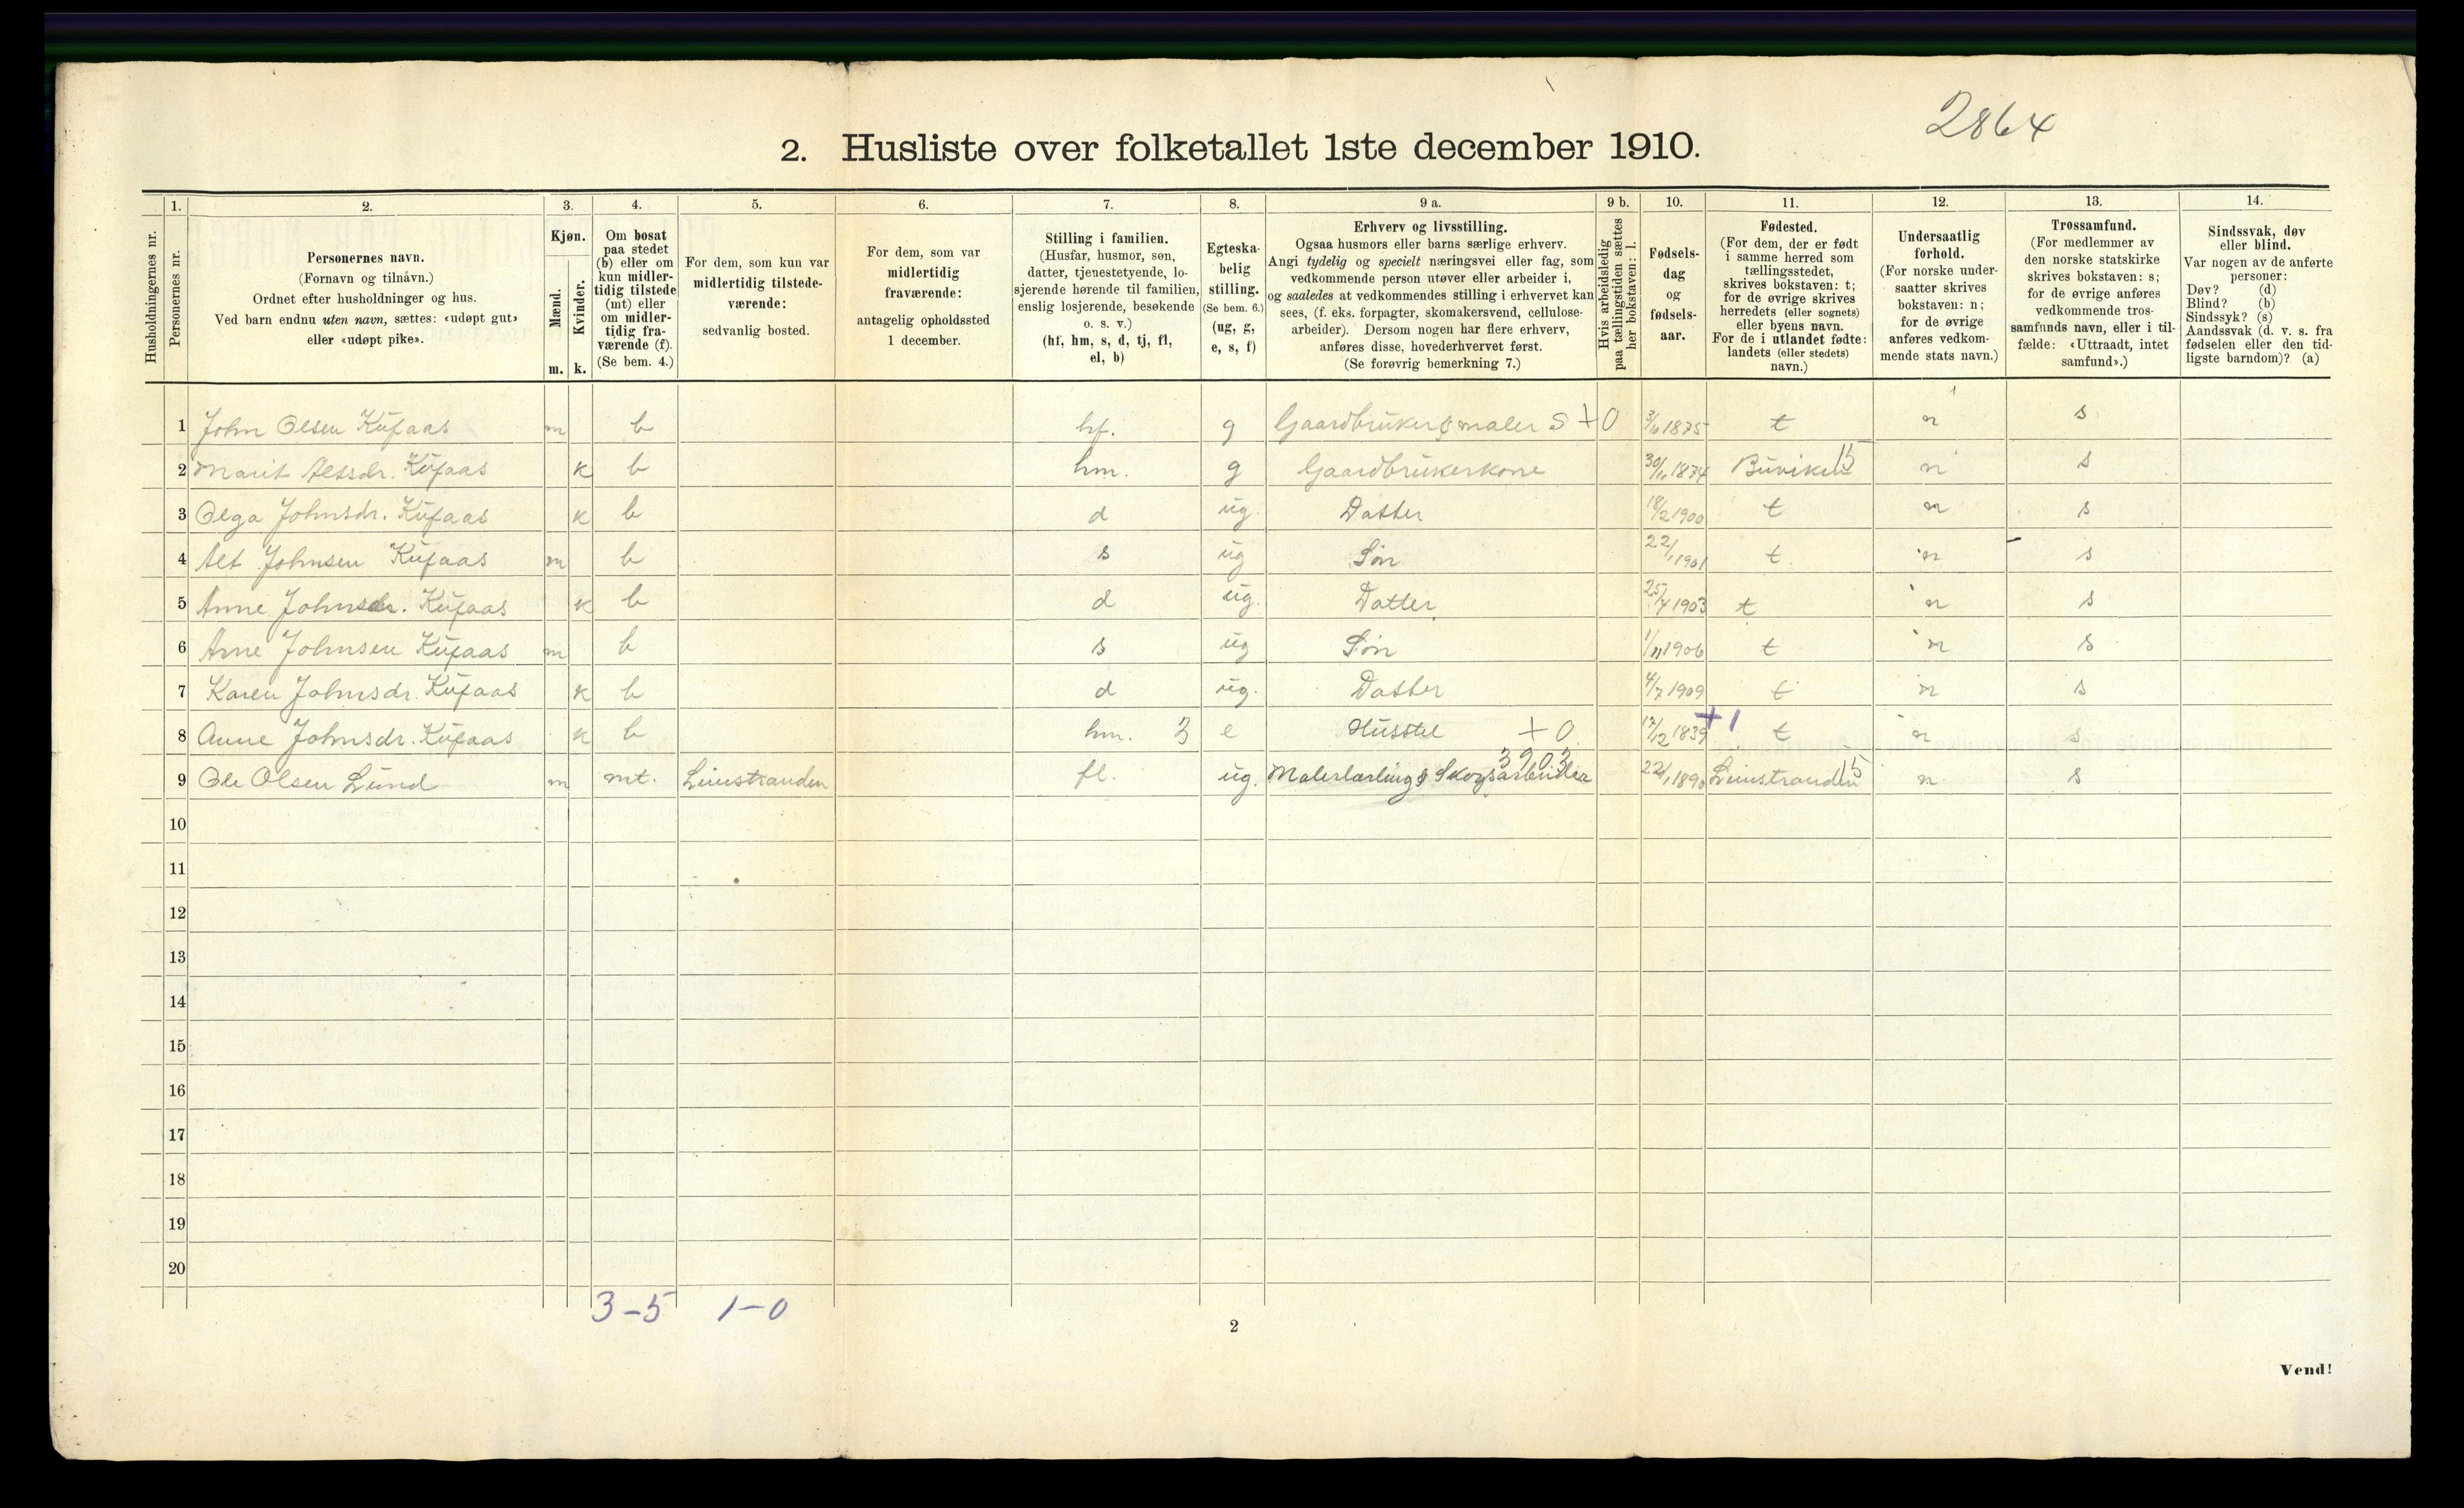 2864
2. Husliste over folketallet 1ste december 1910.
1. 2. 3. 4. 5. 6. 7. 8. 9 a. 9 b. 10. 11. 12. 13. 14.
Husholdningernes nr.
Personernes nr.
Personernes navn.
(Fornavn og tilnåvn.)
Ordnet efter husholdninger og hus.
Ved barn endnu uten navn, sættes: «udøpt gut»
eller «udøpt pike».
Kjøn.
Mænd.
Kvinder.
m. k.
Om bosat
paa stedet
(b) eller om
kun midler-
tidig tilstede
(mt) eller
om midler-
tidig fra-
værende (f).
(Se bem. 4.)
For dem, som kun var
midlertidig tilstede-
værende:
sedvanlig bosted.
For dem, som var
midlertidig
fraværende:
antagelig opholdssted
1 december.
Stilling i familien.
(Husfar, husmor, søn,
datter, tjenestetyende, lo-
sjerende hørende til familien,
enslig losjerende, besøkende
o. s. v.)
(hf, hm, s, d, tj, fl,
el, b)
Egteska-
belig
stilling.
(Se bem. 6.)
(ug, g,
e, s, f)
Erhverv og livsstilling.
Ogsaa husmors eller barns særlige erhverv.
Angi tydelig og specielt næringsvei eller fag, som
vedkommende person utøver eller arbeider i,
og saaledes at vedkommendes stilling i erhvervet kan
sees, (f. eks. forpagter, skomakersvend, cellulose-
arbeider). Dersom nogen har flere erhverv,
anføres disse, hovederhvervet først.
(Se forøvrig bemerkning 7.)
Hvis arbeidsledig
paa tællingstiden sættes
her bokstaven: l.
Fødsels-
dag
og
fødsels-
aar.
Fødested.
(For dem, der er født
i samme herred som
tællingsstedet,
skrives bokstaven: t;
for de øvrige skrives
herredets (eller sognets)
eller byens navn.
For de i utlandet fødte:
landets (eller stedets)
navn.)
Undersaatlig
forhold.
(For norske under-
saatter skrives
bokstaven: n;
for de øvrige
anføres vedkom-
mende stats navn.)
Trossamfund.
(For medlemmer av
den norske statskirke
skrives bokstaven: s;
for de øvrige anføres
vedkommende tros-
samfunds navn, eller i til-
fælde: «Uttraadt, intet
samfund».)
Sindssvak, døv
eller blind.
Var nogen av de anførte
personer:
Døv? (d)
Blind? (b)
Sindssyk? (s)
Aandssvak (d. v. s. fra
fødselen eller den tid-
ligste barndom)? (a)
1 John Olsen Kufaas m b hf. g Gaardbruker & maler S + 0 1875 t n s
2 Marit Altsdr. Kufaas k b hm. g Gaardbrukerkone 30/11 1874 Buviken 15 n s
3 Olga Johnsdr. Kufaas k b d ug. Datter 18/2 1900 t n s
4 Alt Johnsen Kufaas m b s ug Søn 22/1 1901 t n s
5 Anne Johnsdr. Kufaas k b d ug. Datter 25/4 1903 t n s
6 Arne Johnsen Kufaas m b s ug Søn 1/11 1906 t n s
7 Karen Johnsdr. Kufaas k b d ug. Datter 4/7 1909 t n s
8 Anne Johnsdr. Kufaas k b hm. 3 e Husstel + 0 17/12 1839 +1 t n s
3903
9 Ole Olsen Lund m mt. Leinstranden fl. ug. Malerlærling & Skogsarbeider 22/1 1890 Leinstranden 15 n s
10
11
12
13
14
15
16
17
18
19
20
3-5 1-0
2
Vend!